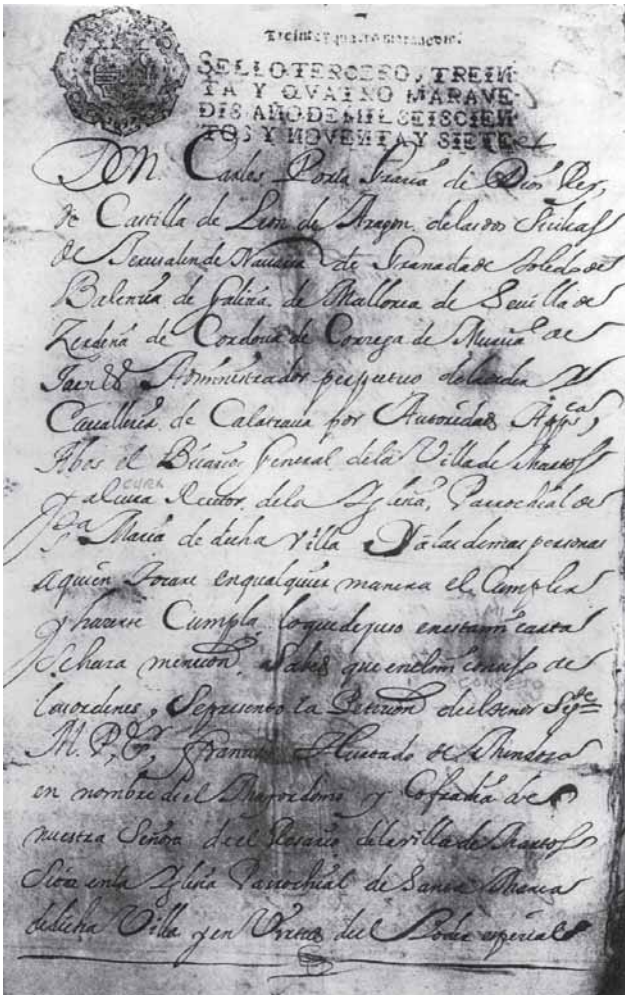 Treinta y quatro maravedis.
SELLO TERCERO, TREIN
TA Y QVATRO MARAVE
DIS AÑO DE MIL SEISCIEN
TOS Y NOVENTA Y SIETE
DON Carlos Por la Gracia de Dios Rey,
de Castilla de Leon de Aragon de las dos Sicilias
de Jerusalen de Navarra de Granada de Toledo de
Balencia de Galicia de Mallorca de Sevilla de
Zerdeña de Cordova de Corzega de Murcia de
Jaen Administrador perpetuo de la orden y
Cavalleria de Calatrava por Autoridad App.ca
Abos el Bicario General de la Villa de Martos
CURA
y al cura Rector de la Yglesia Parrochial de
S.ta Maria de dicha Villa y a las demas personas
a quien tocare en qualquier manera el Cumplir
MI
y hacerse Cumpla lo que de yuso en esta mi carta
se hara mencion Sabed que en el mi consejo de
CONSEJO
las ordenes, Se presento la Peticion del tenor Sig.te
M. P. S. Francisco Hurtado de Mendoza
en nombre de el Mayordomo y Cofradia de
nuestra Señora de el Rosario de la villa de Martos
Sita en la Yglesia Parrochial de Santa Maria
de dicha Villa y en Virtud del Poder especial